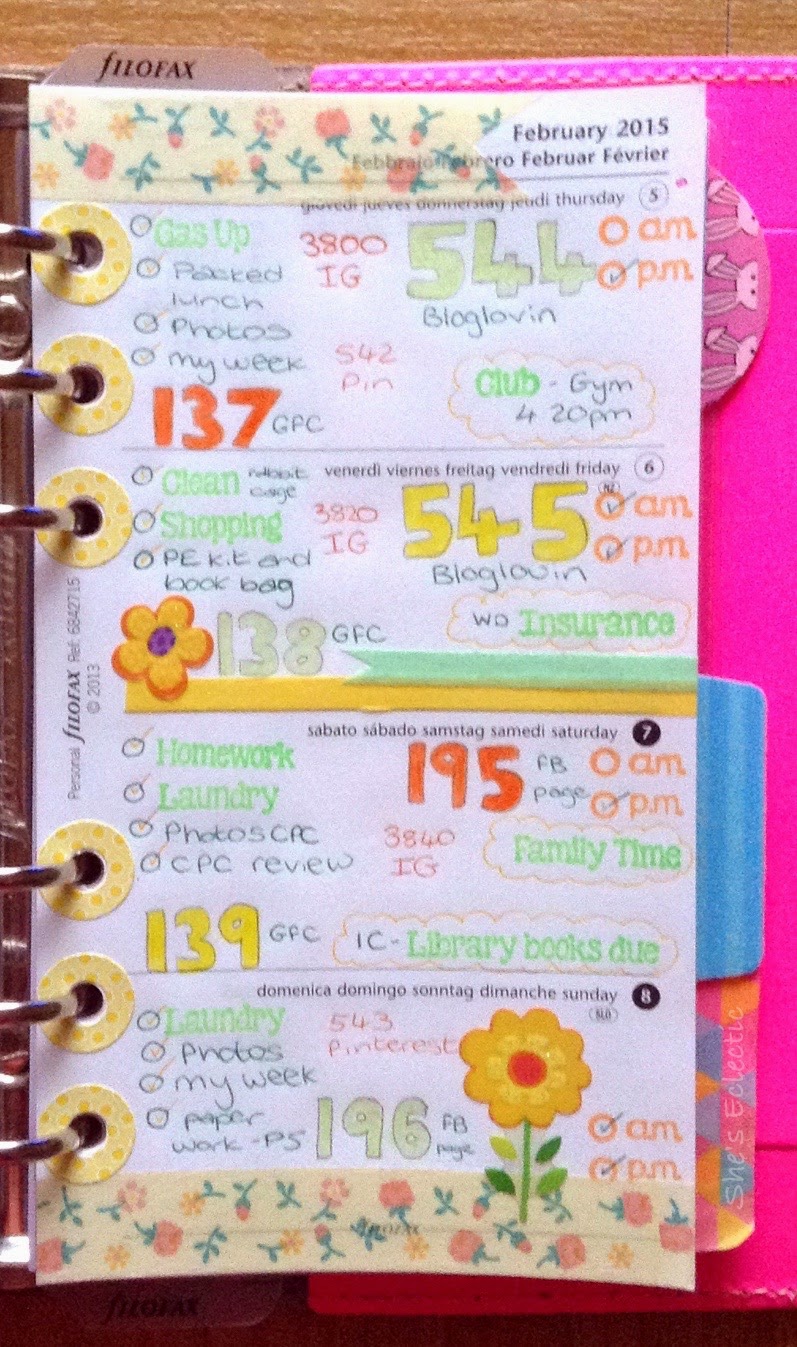 fILOFAX
February 2015
Febbraio Febrero Februar Février
giovedì jueves donnerstag jeudi thursday 5
Gas Up
3800
IG
544
Bloglovin
am
pm
Packed
lunch
Photos
my week
542
Pin
Club - Gym
4 20pm
137 GFC
venerdì viernes freitag vendredi friday 6
NZ
Clean rabbit
cage
Shopping
3820
IG
545
Bloglovin
am
p.m
PE kit and
book bag
138 GFC
WD Insurance
sabato sábado samstag samedi saturday 7
Homework
195 FB
page
am
p.m
Laundry
Photos CPC
CPC review
3840
IG
Family Time
139 GFC
IC - Library books due
domenica domingo sonntag dimanche sunday 8
SLO
Laundry
543
Pinterest
Photos
my week
paper
work - PS
196 FB
page
am
p.m
fILOFAX
fILOFAX
Personal fILOFAX Ref: 6842715
© 2013
She's Eclectic